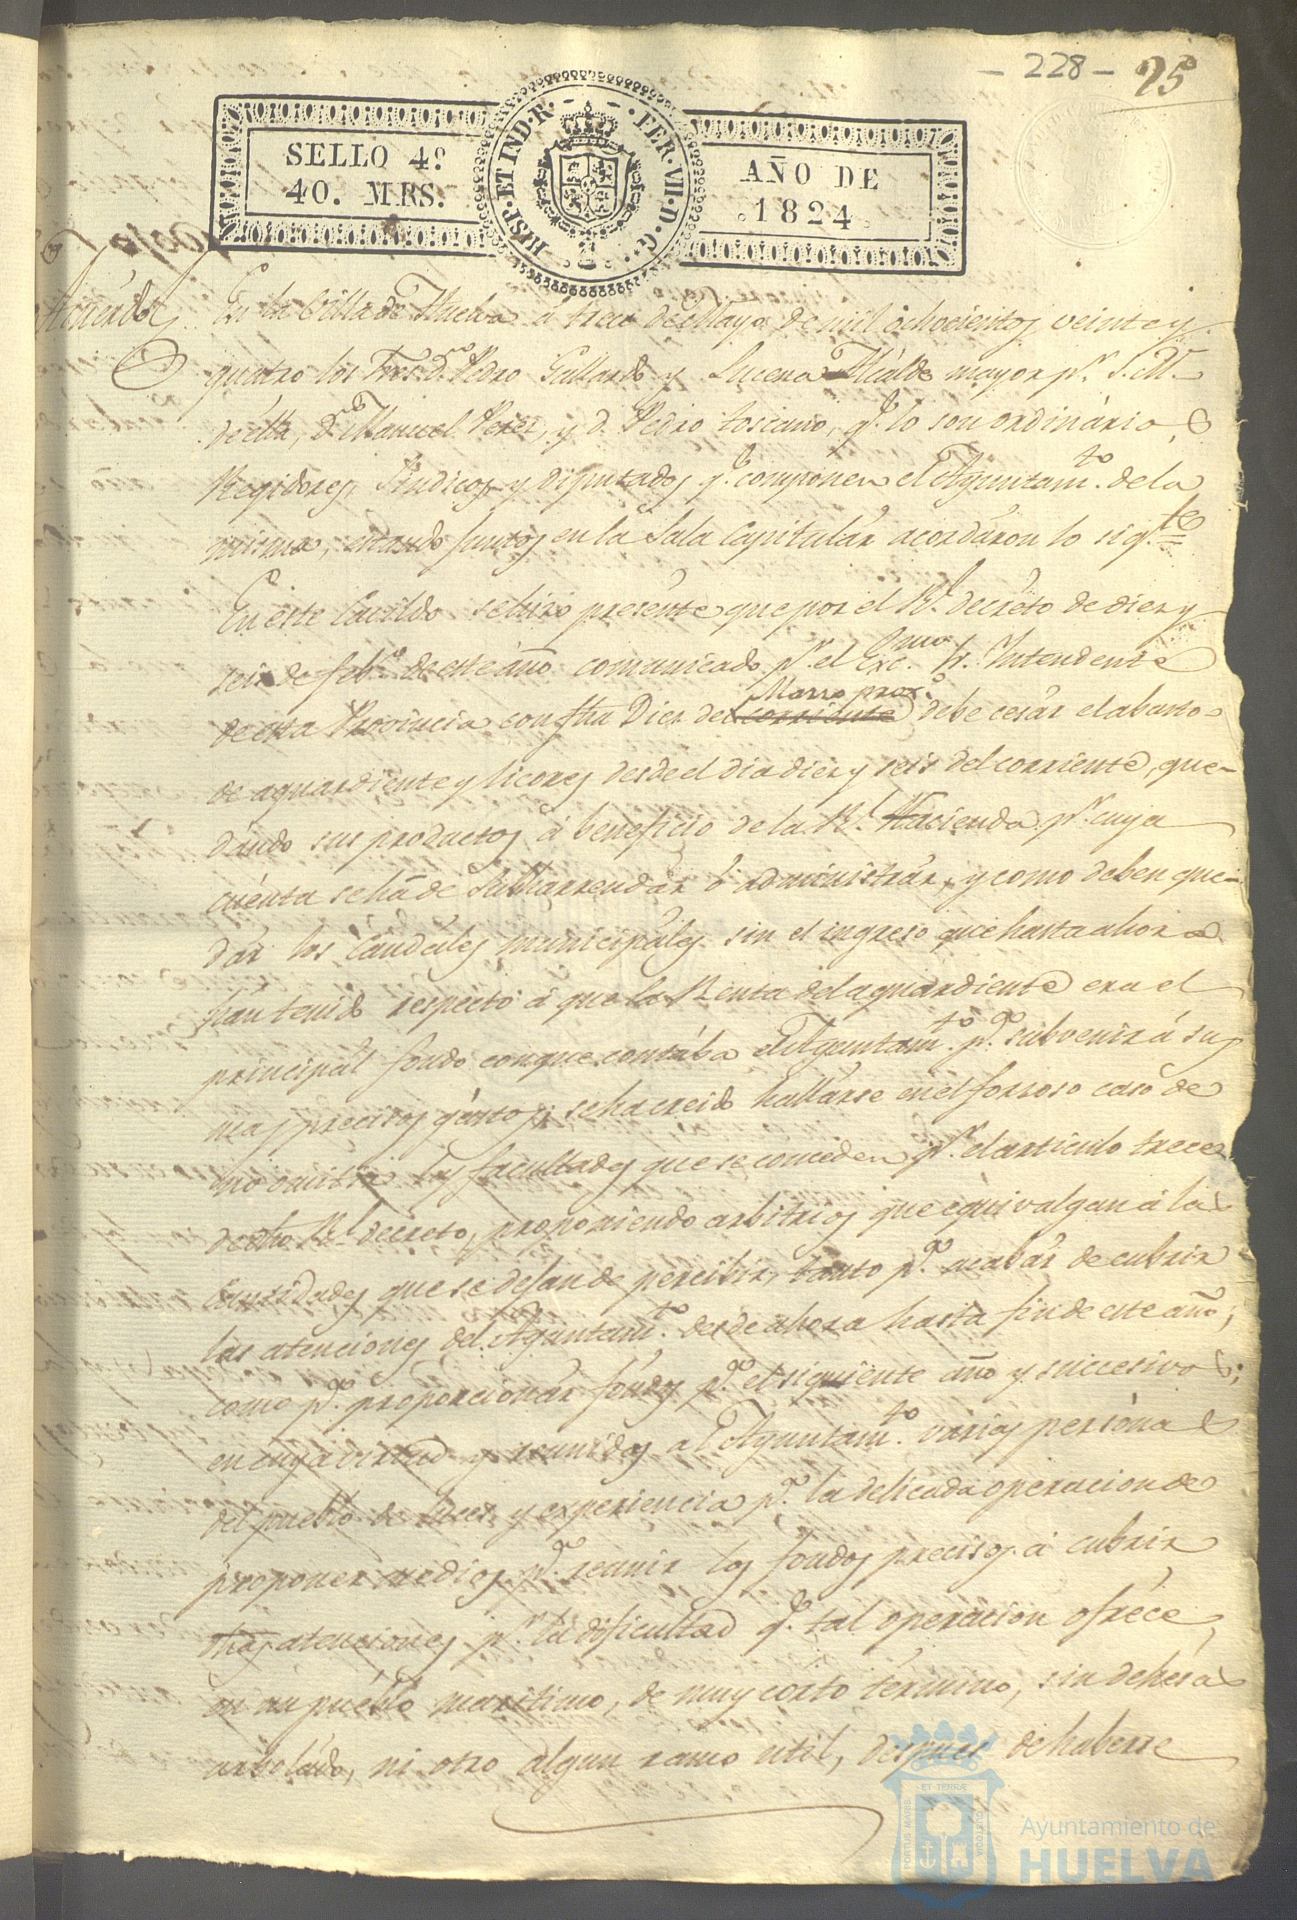 - 228 - 95
SELLO 4º
40. MRS.
HISP. ET IND. R. FER. VII. D. G.
AÑO DE
1824
Acuerdo
En la Villa de Huelva á trece de Mayo de mil ochocientos veinte y
quatro los Sres. Dn. Pedro Gallardo y Lucena Alcalde mayor pr. S. M.
de ella, Dn. Manuel Perez, y D. Pedro Toscano, qe. lo son ordinarios
Regidores, Sindicos y diputados qe. componen el Ayuntamto. de la
misma, estando juntos en la Sala Capitular acordáron lo sigte. =
En este Cavildo se hizo presente que por el Rl. decréto de diez y
seis de febo. de este año comunicado pr. el Excmo. Sr. Intendente
de esta Provincia con fha Diez del corriente Marzo proxo. debe cesár el abasto
de aguardiente y licores desde el dia diez y seis del corriente, que-
dando sus productos á beneficio de la Rl. Hacienda pr. cuya
cuénta se há de Subharrendár ó administrár, y como deben que-
dár los Caudáles municipáles sin el ingreso que hasta ahora
han tenido respecto á que la Renta del aguardiente era el
principál fondo con que contába el Ayuntamto. pa. subvenir á sus
mas precisos gástos, se ha creido hallárse en el forzoso caso de
las facultades que se conceden pr. el articulo trece
de dho Rl. decreto, proponiendo arbitrios que equivalgan á las
Cantidades que se dejan de percibir, tanto pa. acabár de cubrir
las atenciones del Ayuntamto. desde ahora hasta fin de este año,
como pa. proporcionár fondos pa. el siguiente año y succesivos;
en cuya virtud y reunidos al Ayuntamto. varias persónas
del pueblo de luces y experiencia pa. la delicada operacion de
proponer medios pa. reunir los fondos precisos á cubrir
dhas atenciones pr. la dificultad qe. tal operacion ofréce
en un puéblo maritimo, de muy corto término, sin dehésa
arbolado, ni otro algun ramo util, despues de haberse
PORTUS MARIS ET TERRÆ CUSTODIA
Ayuntamiento de
HUELVA